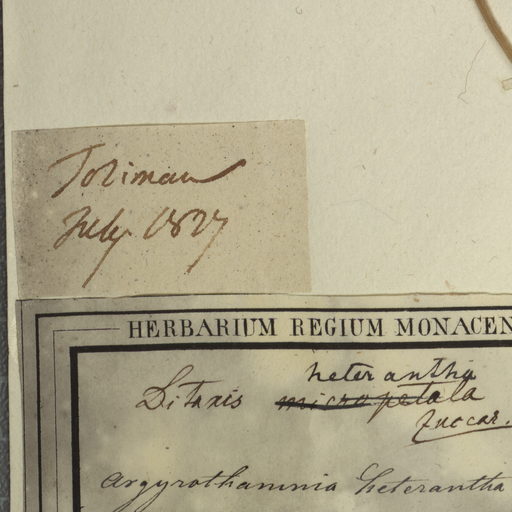 Toliman
July 1827
HERBARIUM REGIUM MONACEN
heterantha
Ditaxis micropetala
Zuccar.
Argyrothamnia heterantha